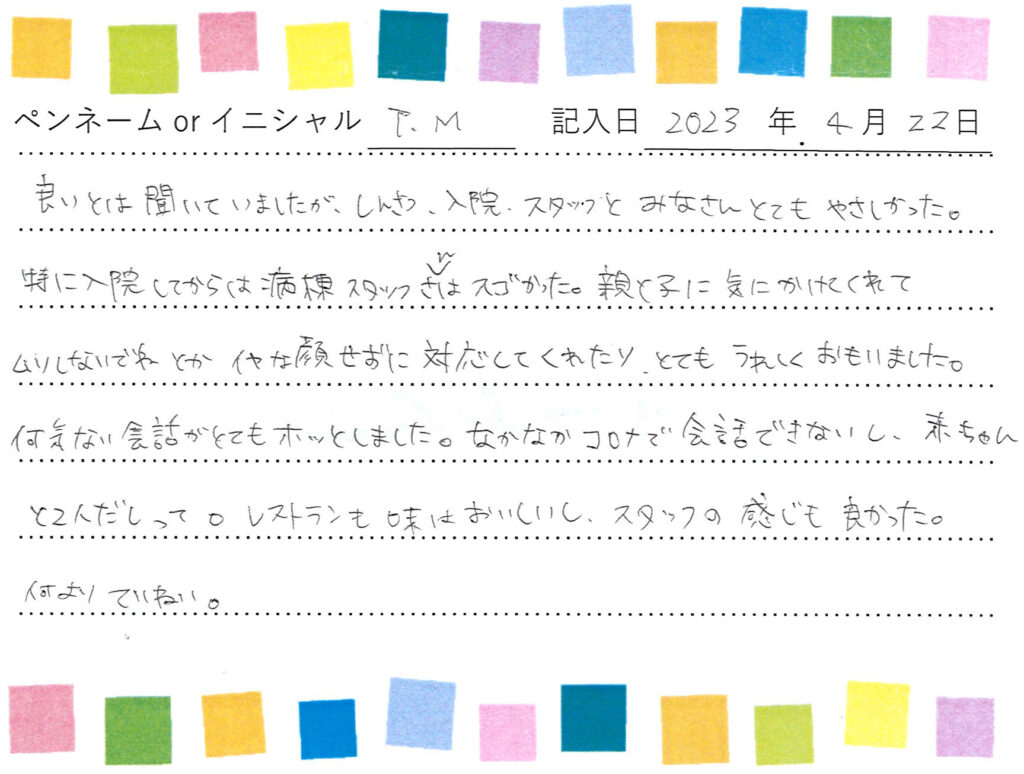 ペンネーム or イニシャル T.M 記入日 2023 年 4 月 22 日
良いとは聞いていましたが、しんさつ、入院、スタッフと みなさんとても やさしかった。
特に入院してからは病棟スタッフさんはスゴかった。親と子に気にかけてくれて
ムリしないでね とか イヤな顔せずに 対応してくれたり、とても うれしく おもいました。
何気ない会話がとてもホッとしました。なかなかコロナで会話できないし、赤ちゃん
と2人だしって。レストランも味はおいしいし、スタッフの感じも良かった。
何よりていねい。